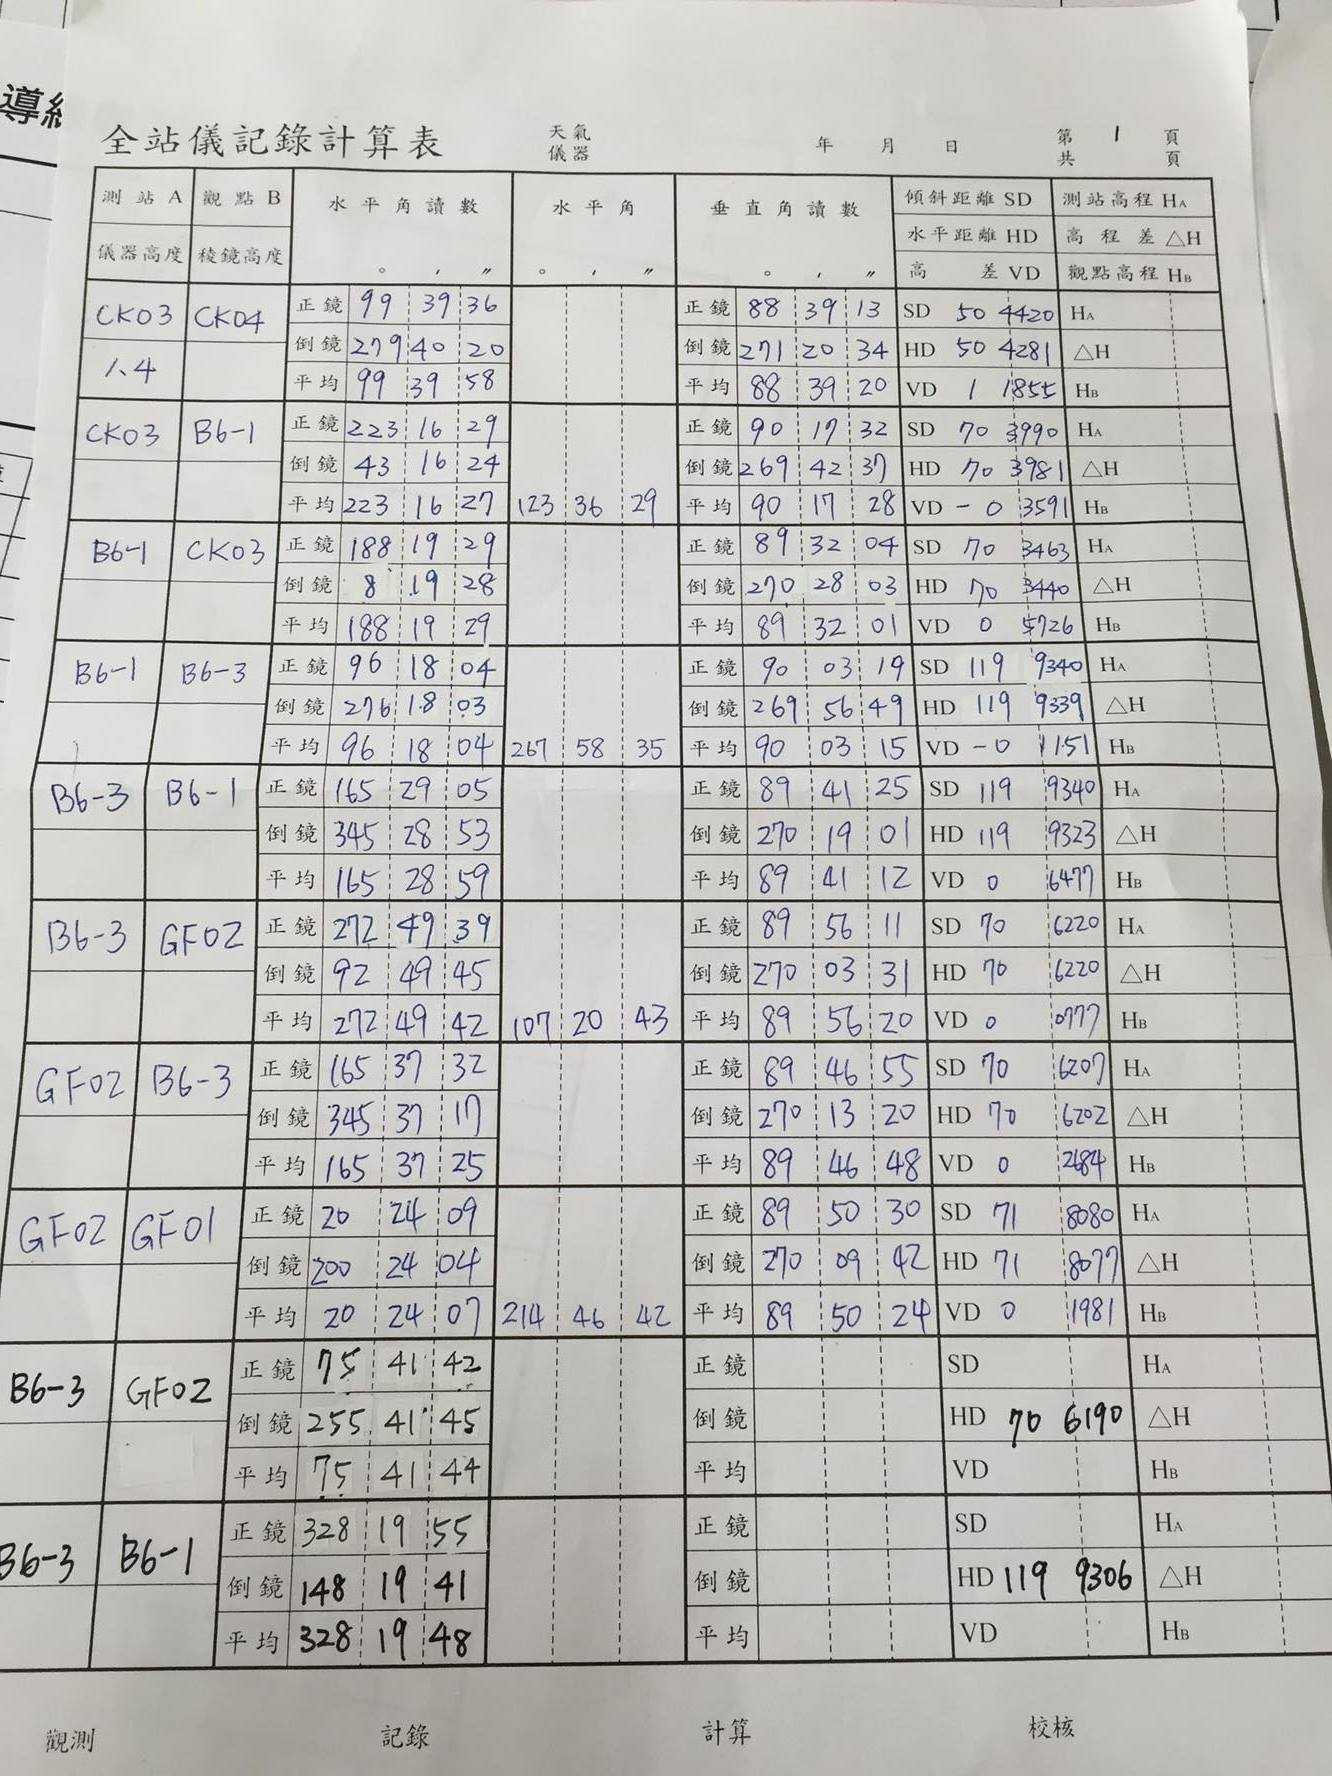 導
全站儀記錄計算表
天氣
儀器
年 月 日
第 1 頁
共 頁
測站A 觀點B 水平角讀數 水平角 垂直角讀數 傾斜距離 SD 測站高程 HA
水平距離 HD 高程差 △H
儀器高度 稜鏡高度 ° ′ ″ ° ′ ″ ° ′ ″ 高差 VD 觀點高程 HB
CK03 CK04 正鏡 99 39 36 正鏡 88 39 13 SD 50 4420 HA
1.4 倒鏡 279 40 20 倒鏡 271 20 34 HD 50 4281 △H
平均 99 39 58 平均 88 39 20 VD 1 1855 HB
CK03 B6-1 正鏡 223 16 29 正鏡 90 17 32 SD 70 3990 HA
倒鏡 43 16 24 倒鏡 269 42 37 HD 70 3981 △H
平均 223 16 27 123 36 29 平均 90 17 28 VD -0 3591 HB
B6-1 CK03 正鏡 188 19 29 正鏡 89 32 04 SD 70 3463 HA
倒鏡 8 19 28 倒鏡 270 28 03 HD 70 3440 △H
平均 188 19 29 平均 89 32 01 VD 0 5726 HB
B6-1 B6-3 正鏡 96 18 04 正鏡 90 03 19 SD 119 9340 HA
倒鏡 276 18 03 倒鏡 269 56 49 HD 119 9339 △H
平均 96 18 04 267 58 35 平均 90 03 15 VD -0 1151 HB
B6-3 B6-1 正鏡 165 29 05 正鏡 89 41 25 SD 119 9340 HA
倒鏡 345 28 53 倒鏡 270 19 01 HD 119 9323 △H
平均 165 28 59 平均 89 41 12 VD 0 6477 HB
B6-3 GF02 正鏡 272 49 39 正鏡 89 56 11 SD 70 6220 HA
倒鏡 92 49 45 倒鏡 270 03 31 HD 70 6220 △H
平均 272 49 42 107 20 43 平均 89 56 20 VD 0 0777 HB
GF02 B6-3 正鏡 165 37 32 正鏡 89 46 55 SD 70 6207 HA
倒鏡 345 37 17 倒鏡 270 13 20 HD 70 6202 △H
平均 165 37 25 平均 89 46 48 VD 0 2684 HB
GF02 GF01 正鏡 20 24 09 正鏡 89 50 30 SD 71 8080 HA
倒鏡 200 24 04 倒鏡 270 09 42 HD 71 8077 △H
平均 20 24 07 214 46 42 平均 89 50 24 VD 0 1981 HB
B6-3 GF02 正鏡 75 41 42 正鏡 SD HA
倒鏡 255 41 45 倒鏡 HD 70 6190 △H
平均 75 41 44 平均 VD HB
B6-3 B6-1 正鏡 328 19 55 正鏡 SD HA
倒鏡 148 19 41 倒鏡 HD 119 9306 △H
平均 328 19 48 平均 VD HB
觀測 記錄 計算 校核